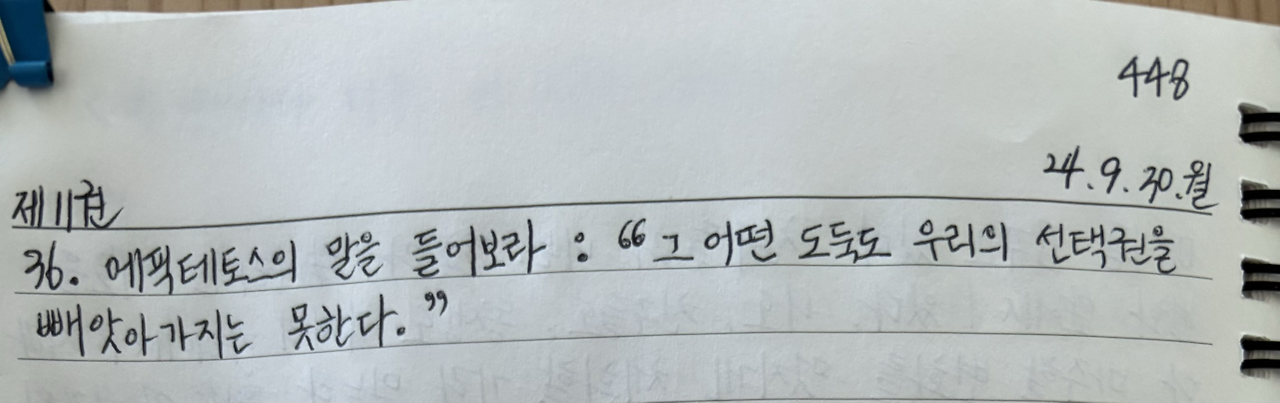 448
24.9.30.월
제11권
36. 에픽테토스의 말을 들어보라 : “그 어떤 도둑도 우리의 선택권을
빼앗아가지는 못한다.”